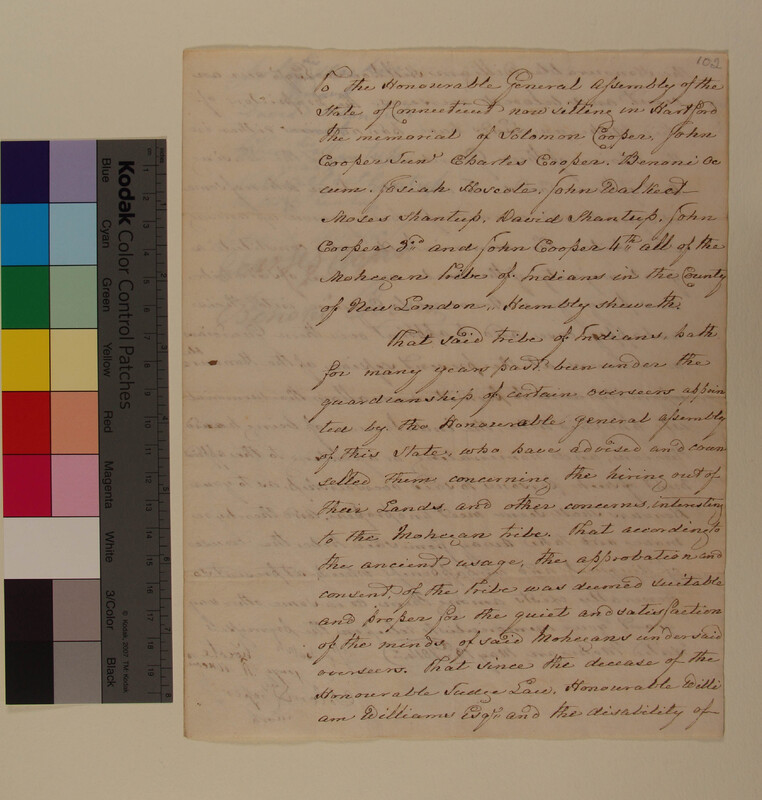 102
To the Honourable General Assembly of the
State of Connecticut now sitting in Hartford
The memorial of Solomon Cooper, John
Cooper Junr Charles Cooper, Benoni Oc
cum. Josiah Hoscote. John
Moses Shantup, David Shantup, John
Cooper 3rd and John Cooper 4th all of the
Mohegan tribe of Indians in the County
of New London, Humbly sheweth,
That said tribe of Indians, hath
for many years past been under the
guardianship of certain overseers appoin
ted by the Honourable general assembly
of this State, who have advised and coun
selled them concerning the hiring out of
their Lands and other concerns, interesting
to the Mohegan tribe. That according to
the ancient usage, the approbation and
consent, of the tribe was deemed suitable
and proper for the quiet and satisfaction
of the minds of said Mohegans under said
overseers. That since the decease of the
Honourable Judge Law, Honourable Willi
am Williams Esqr and the disability of
Kodak Color Control Patches
Blue
Cyan
Green
Yellow
Red
Magenta
White
3/Color
Black
© Kodak, 2007 TM: Kodak
1
2
3
4
5
6
7
8
9
10
11
12
13
14
15
16
17
18
19
1
2
3
4
5
6
7
8